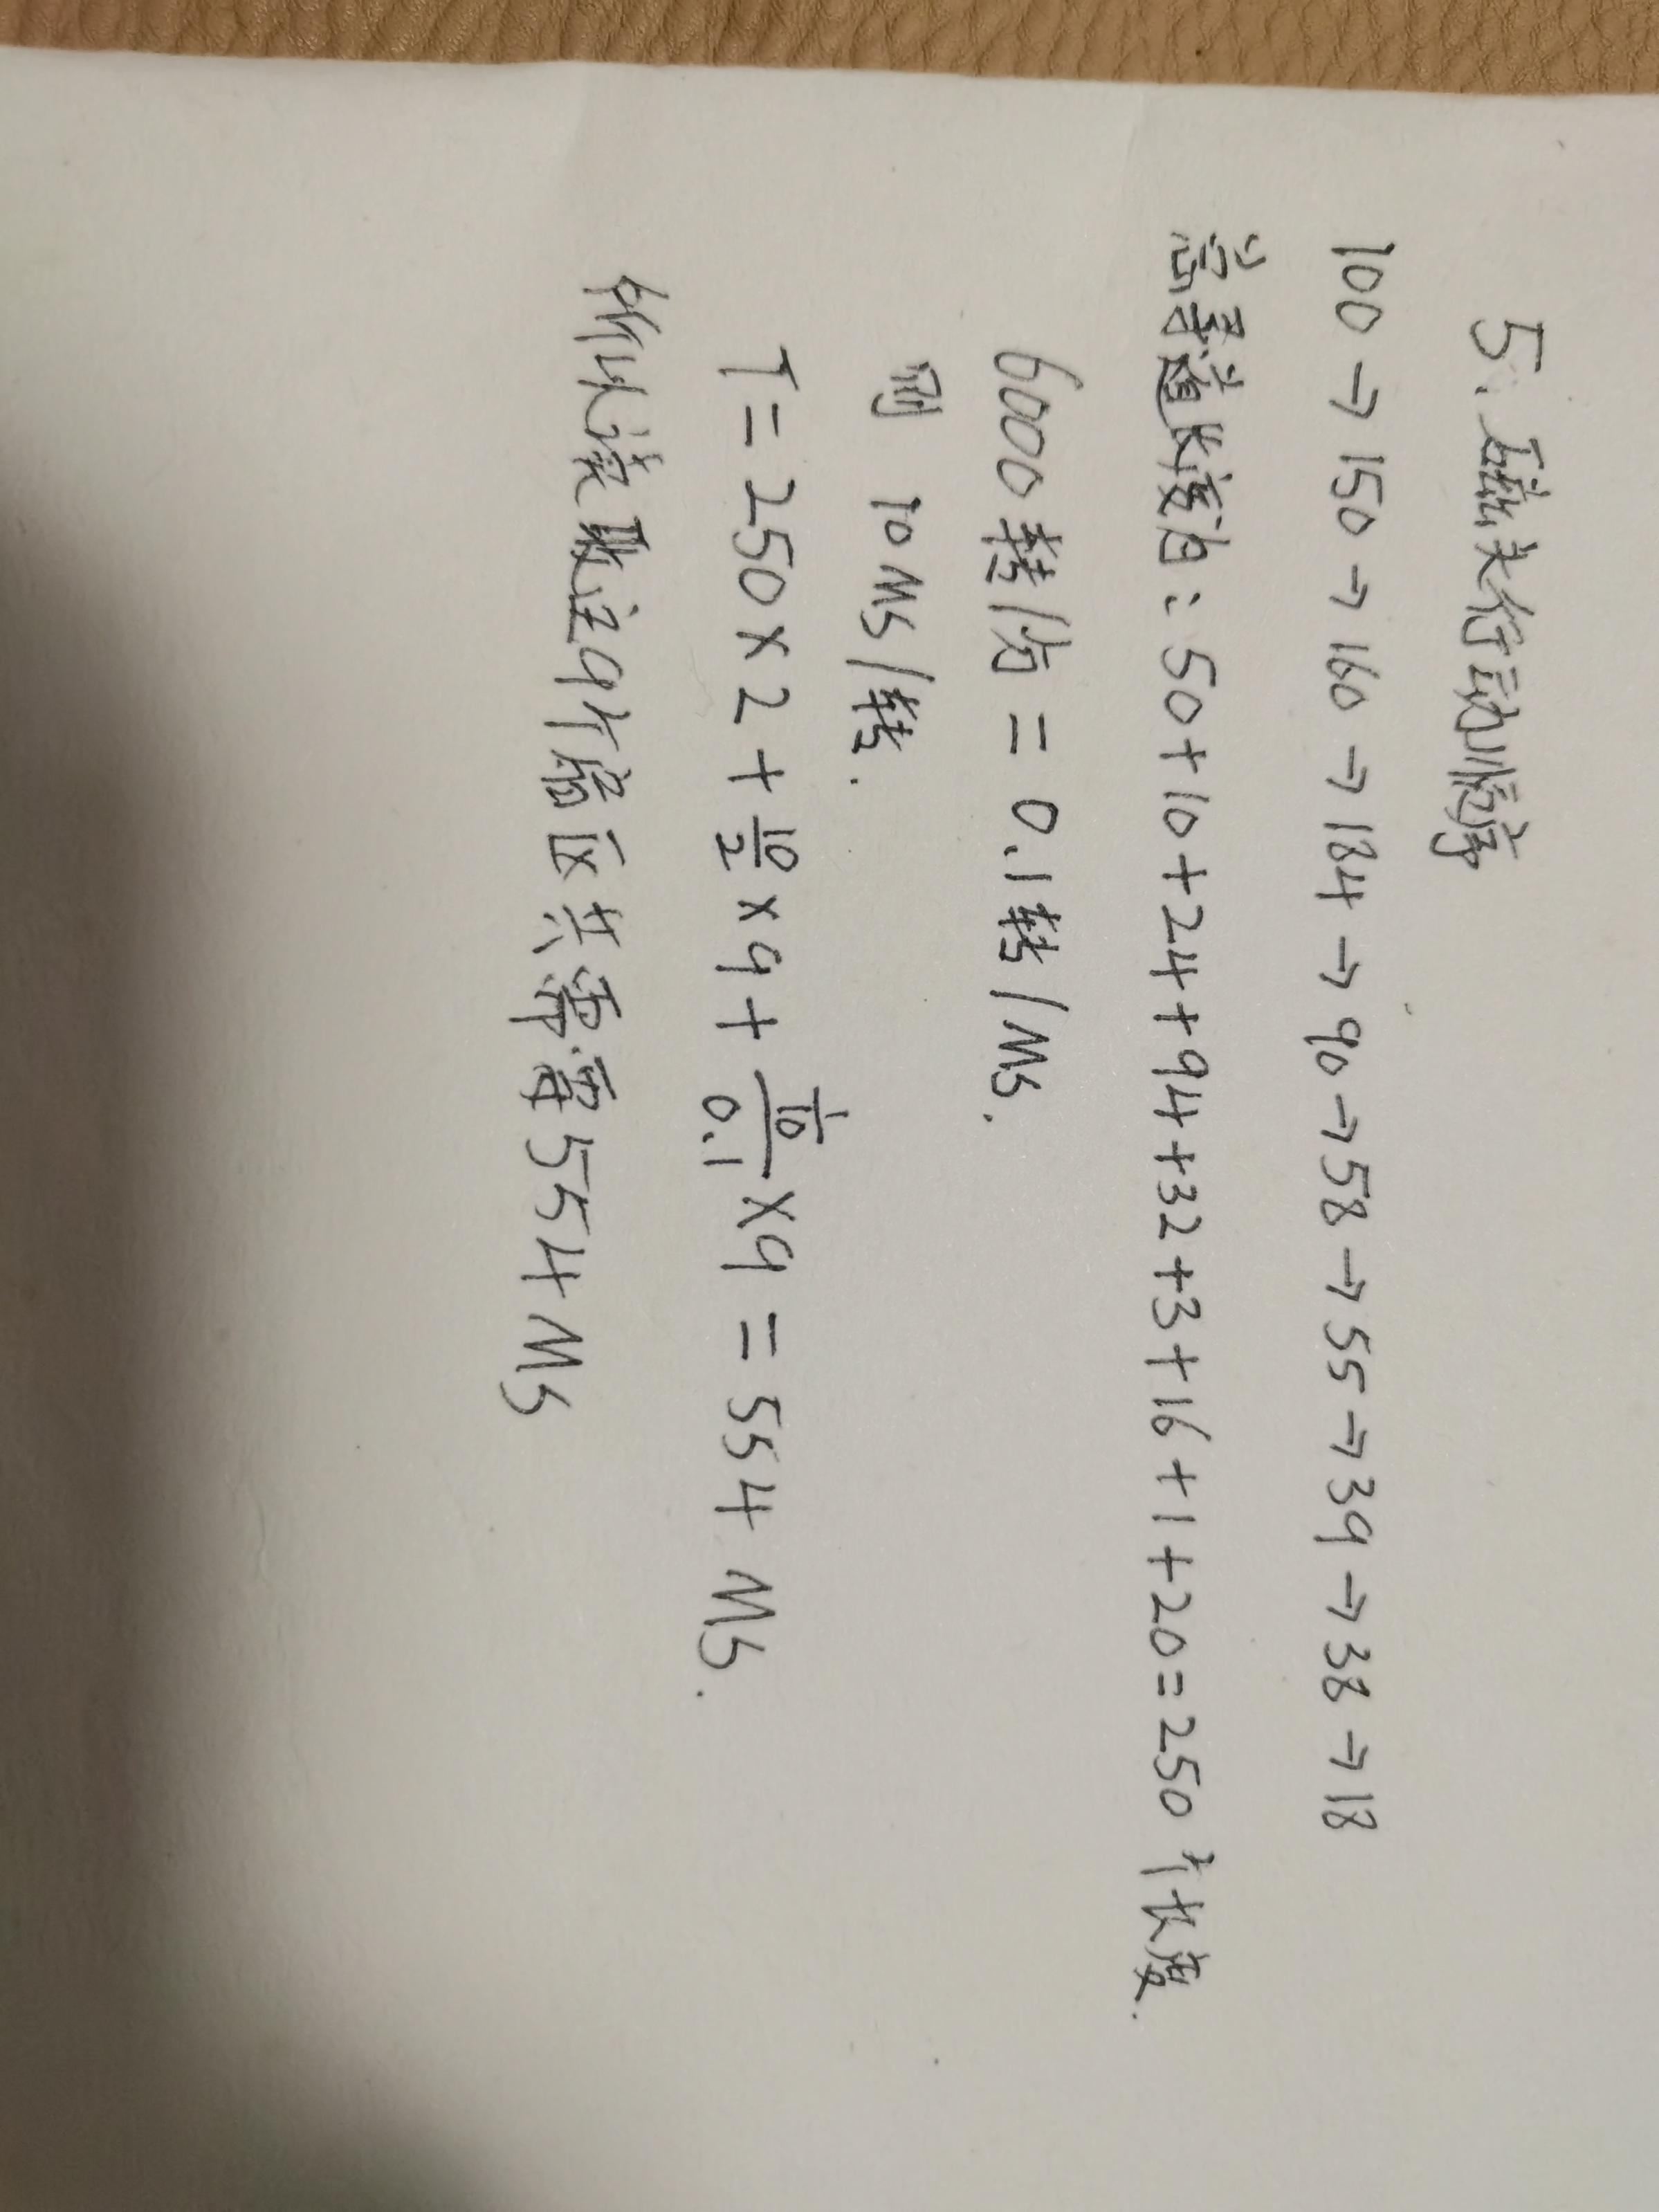 5、磁头行动顺序
100→150→160→184→90→58→55→39→38→18
总寻道长度为：50+10+24+94+32+3+16+1+20=250个长度.
6000转/分 = 0.1转/Ms.
则 10Ms/转.
T=250×2+\frac{10}{2}×9+\frac{\frac{1}{10}}{0.1}×9=554 Ms.
所以读取这9个扇区共需要554Ms